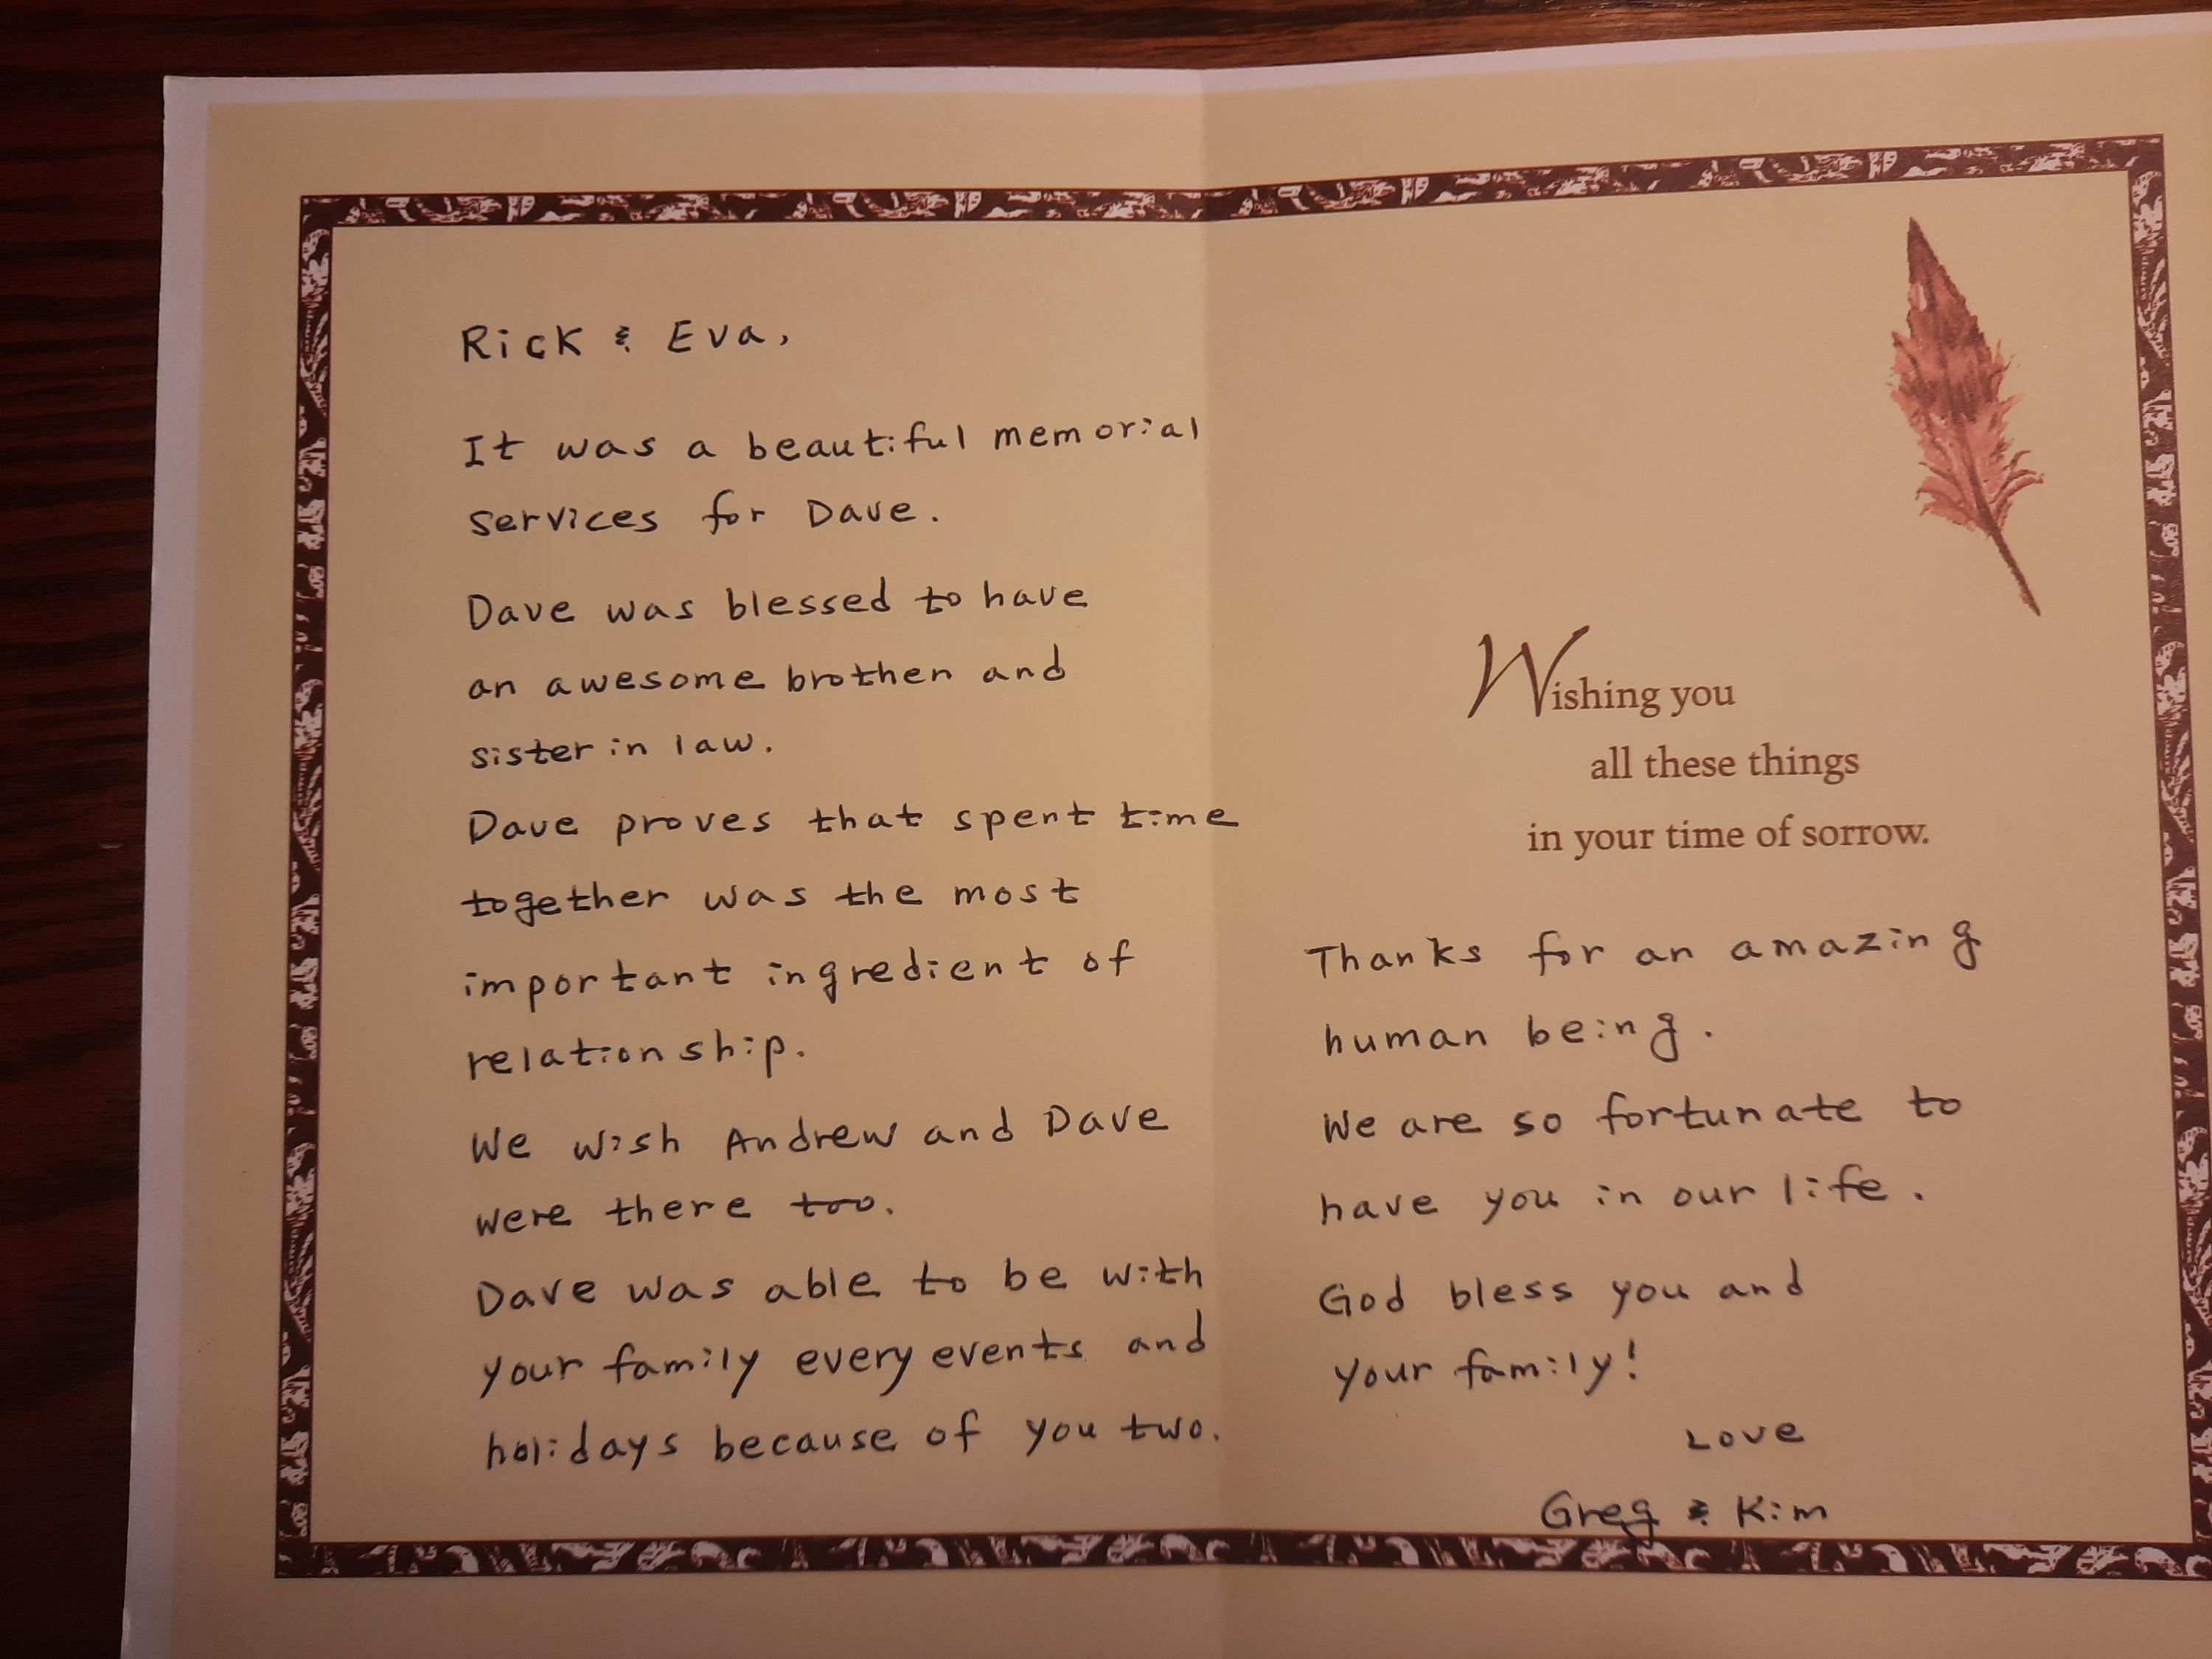 Rick & Eva,
It was a beautiful memorial
services for Dave.
Dave was blessed to have
an awesome brother and
sister in law.
Dave proves that spent time
together was the most
important ingredient of
relationship.
We wish Andrew and Dave
were there too.
Dave was able to be with
your family every events and
holidays because of you two.
Wishing you
all these things
in your time of sorrow.
Thanks for an amazing
human being.
We are so fortunate to
have you in our life.
God bless you and
your family!
Love
Greg & Kim